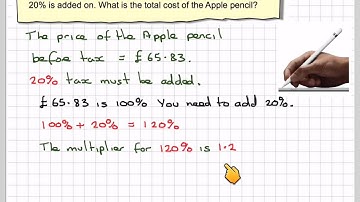 20% is added on. What is the total cost of the Apple pencil?
The price of the Apple pencil
before tax = £65.83.
20% tax must be added.
£65.83 is 100% You need to add 20%.
100% + 20% = 120%
The multiplier for 120% is 1.2